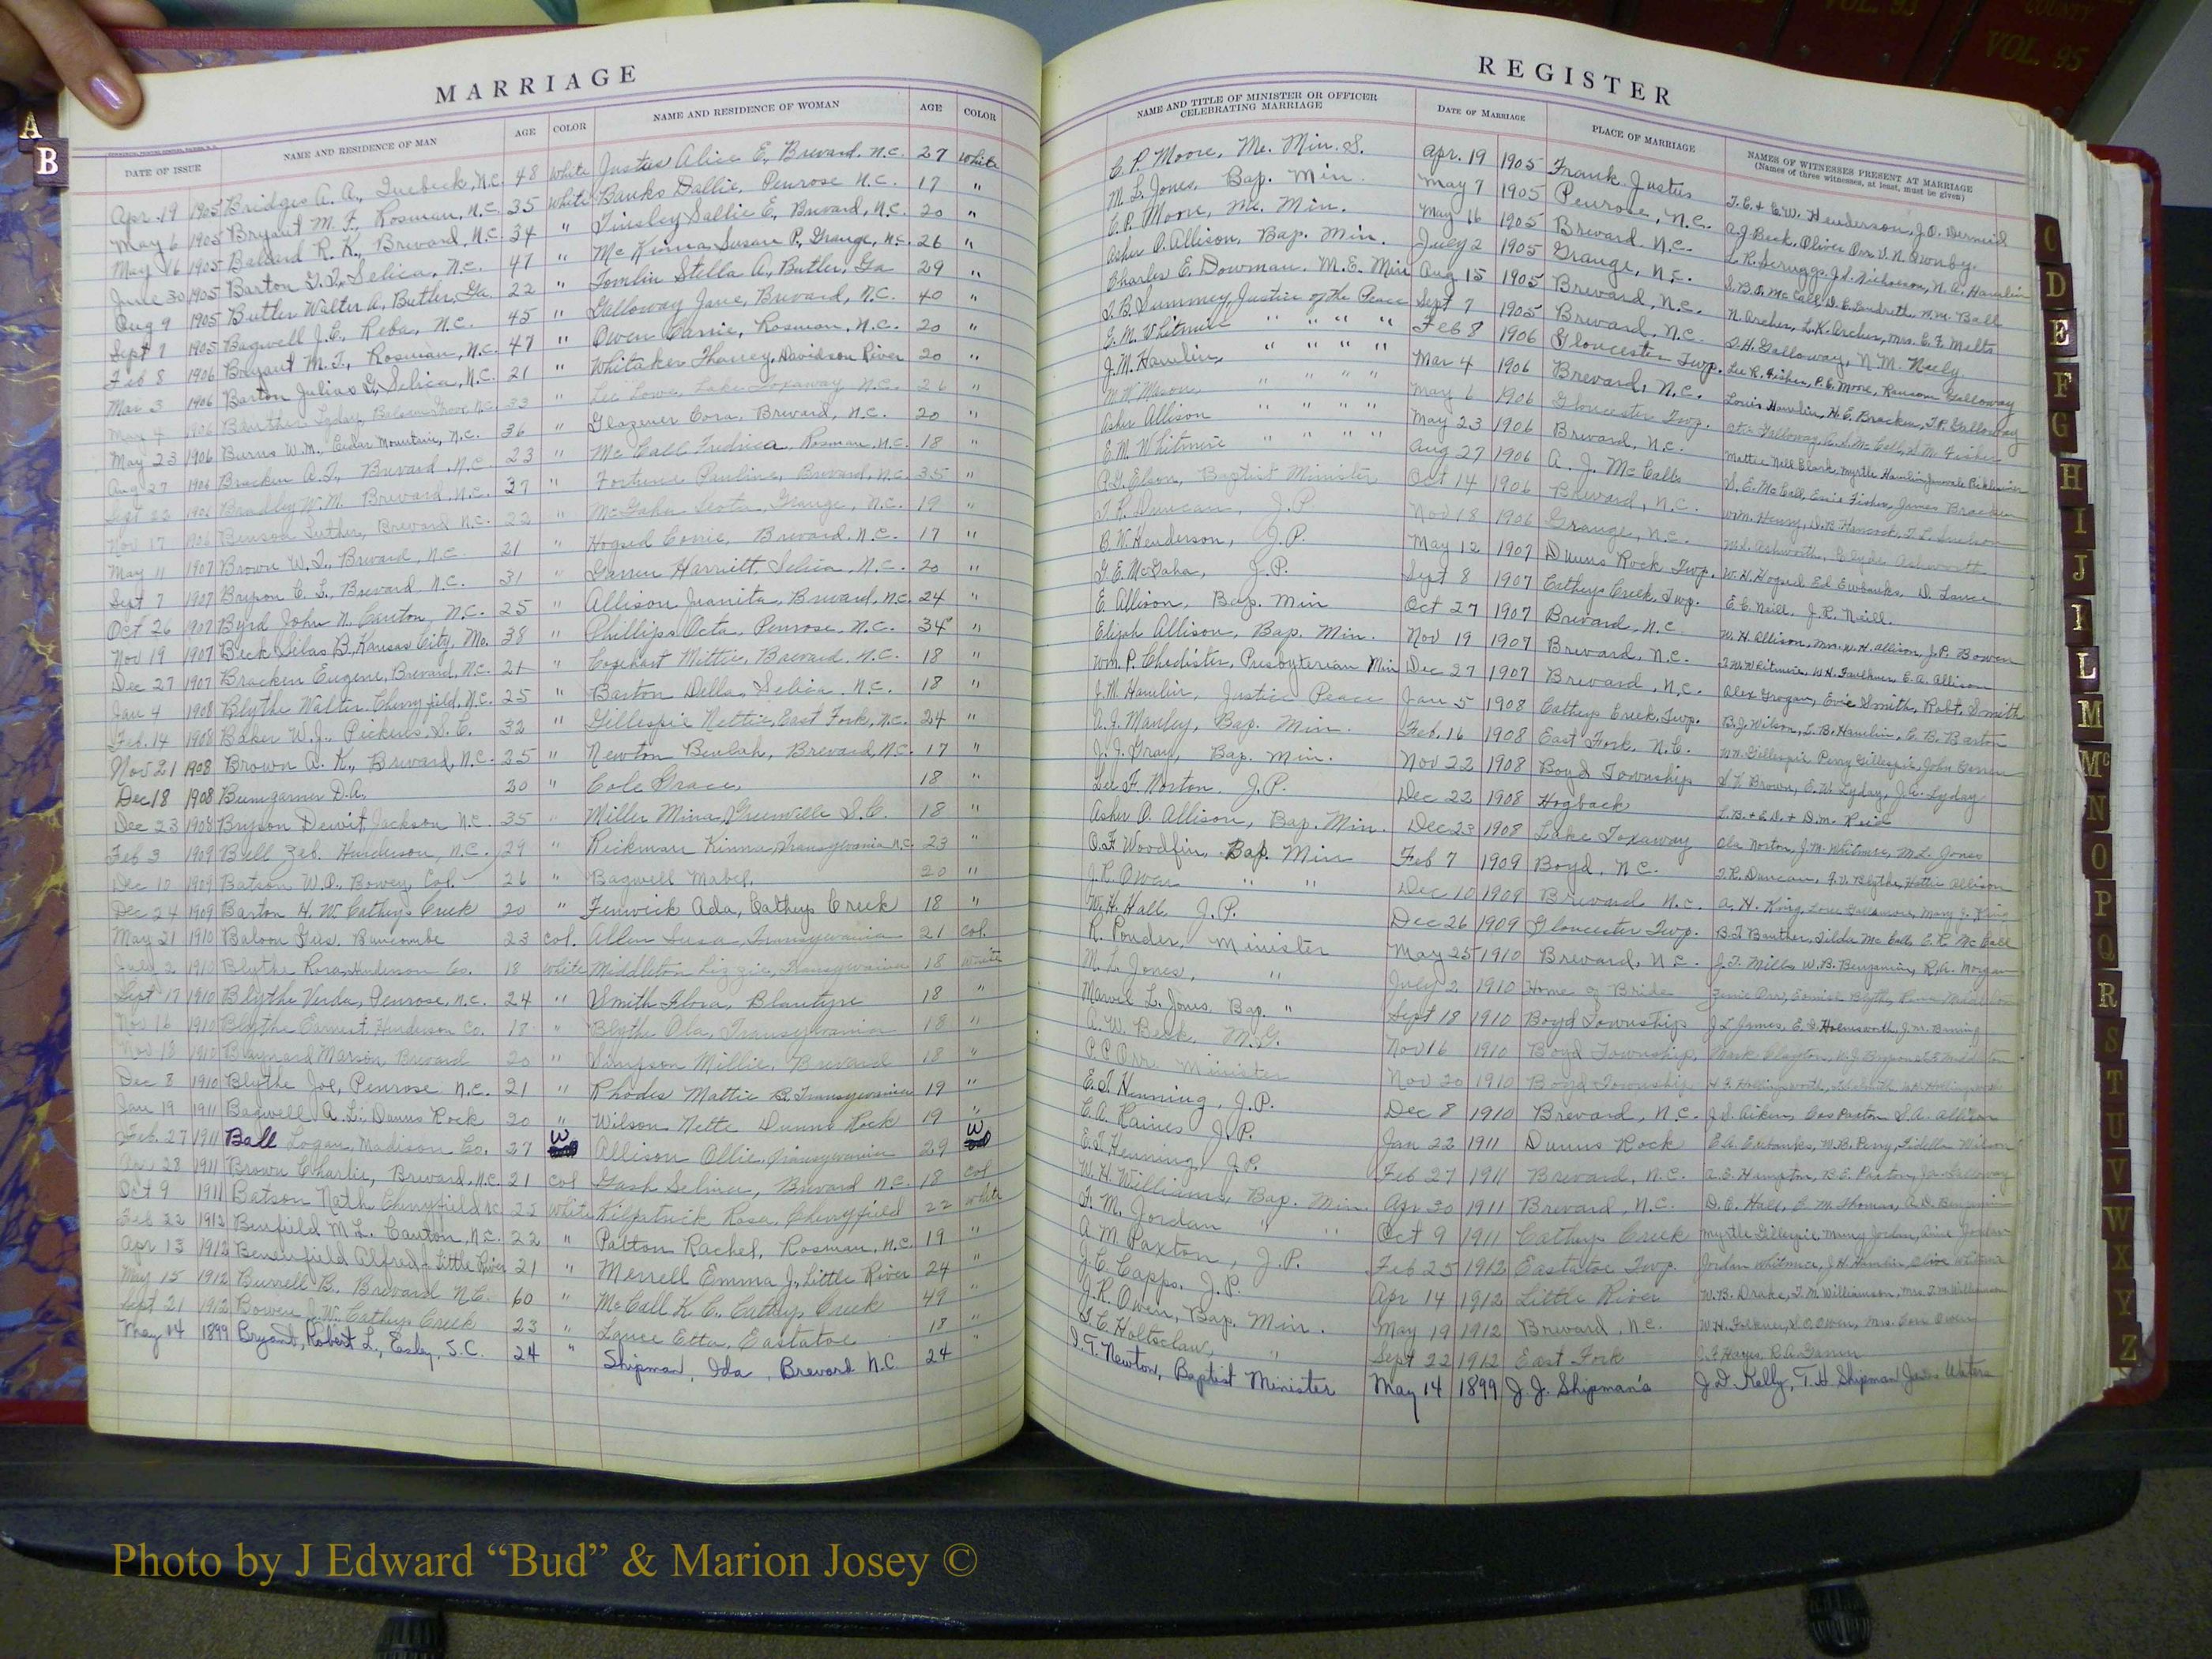 COUNTY
VOL. 93
VOL. 95
MARRIAGE
REGISTER
A
B
DATE OF ISSUE NAME AND RESIDENCE OF MAN AGE COLOR NAME AND RESIDENCE OF WOMAN AGE COLOR
NAME AND TITLE OF MINISTER OR OFFICER CELEBRATING MARRIAGE DATE OF MARRIAGE PLACE OF MARRIAGE NAMES OF WITNESSES PRESENT AT MARRIAGE
(Names of three witnesses, at least, must be given)
Apr. 19 1905 Bridges A. A., Quebeck, N.C. 48 White Justus Alice E., Brevard, N.C. 27 White
May 6 1905 Bryant M. F., Rosman, N.C. 35 White Banks Dallie, Penrose N.C. 17 "
May 16 1905 Ballard R. K., Brevard, N.C. 34 " Tinsley Sallie E., Brevard, N.C. 20 "
June 30 1905 Barton Selica, N.C. 47 " McKinna Susan P., Grange, N.C. 26 "
Aug 9 1905 Butler Walter A, Butler, Ga. 22 " Tomlin Stella A., Butler, Ga 29 "
Sept 7 1905 Bagwell J. E., Reba, N.C. 45 " Galloway Jane, Brevard, N.C. 40 "
Feb 8 1906 Bryant M. J., Rosman, N.C. 47 " Owen Carrie, Rosman, N.C. 20 "
Mar 3 1906 Barton Julias G., Selica, N.C. 21 " Whitaker Davidson River 20 "
May 4 1906 33 " Lee Lowe, Lake Toxaway N.C. 26 "
May 23 1906 Burns W. M., Cedar Mountain, N.C. 36 " Glazener Cora, Brevard, N.C. 20 "
Aug 27 1906 Bracken A. J., Brevard, N.C. 23 " McCall Fredrica, Rosman, N.C. 18 "
Sept 22 1906 Bradley W. M. Brevard, N.C. 37 " Fortune Pauline, Brevard, N.C. 35 "
Nov 17 1906 Benson Luther, Brevard N.C. 22 " McGaha Leota, Grange, N.C. 19 "
May 11 1907 Brown W. T., Brevard, N.C. 21 " Hogsed Brevard, N.C. 17 "
Sept 7 1907 Bryson C. L., Brevard N.C. 31 " Garren Harriett, Selica, N.C. 20 "
Oct 26 1907 Byrd John N. Canton, N.C. 25 " Allison Juanita, Brevard, N.C. 24 "
Nov 19 1907 Beck Silas B., Kansas City, Mo. 38 " Phillips Octa, Penrose, N.C. 34 "
Dec 27 1907 Bracken Eugene, Brevard, N.C. 21 " Mittie, Brevard, N.C. 18 "
Jan 4 1908 Blythe Walter, Cherryfield, N.C. 25 " Barton Della, Selica, N.C. 18 "
Feb. 14 1908 Baker W. J., Pickens S.C. 32 " Gillespie Nettie, East Fork, N.C. 24 "
Nov 21 1908 Brown A. K., Brevard, N.C. 25 " Newton Beulah, Brevard, N.C. 17 "
Dec 18 1908 Bumgarner D. A. 30 " Cole Grace, 18 "
Dec 23 1908 Bryson Dewit, Jackson N.C. 35 " Miller Mina, Greenville S.C. 18 "
Feb 3 1909 Bell Zeb. Henderson, N.C. 29 " Reikman Kinna, Transylvania N.C. 23 "
Dec 10 1909 Batson W. P., Bowey, Col. 26 " Bagwell Mabel, 20 "
Dec 24 1909 Barton H. W. Catheys Creek 20 " Fenwick Ada, Catheys Creek 18 "
May 21 1910 Baloon Gus. Buncombe 23 Col. Allen Susa Transylvania 21 Col
July 2 1910 Blythe Ross, Henderson Co. 18 White Middleton Lizzie, Transylvania 18 White
Sept 17 1910 Blythe Verda, Penrose, N.C. 24 " Smith Flora, Blantyre 18 "
Nov 16 1910 Blythe Earnest, Henderson Co. 18 " Blythe Ola, Transylvania 18 "
Nov 18 1910 Baynard Marion, Brevard 20 " Simpson Millie, Brevard 18 "
Dec 8 1910 Blythe Joe, Penrose N.C. 21 " Rhodes Mattie B. Transylvania 19 "
Jan 19 1911 Bagwell A. L., Dunns Rock 20 " Wilson Nette Dunns Rock 19 "
Feb. 27 1911 Ball Logan, Madison Co. 27 W Allison Ollie, Transylvania 29 W
Apr 28 1911 Brown Charlie, Brevard, N.C. 21 Col Gash Selina, Brevard N.C. 18 Col
Oct 9 1911 Batson Nath, Cherryfield N.C 22 White Kilpatrick Rosa, Cherryfield 22 White
Feb 22 1912 Benfield M. L. Canton, N.C. 22 " Patton Rachel, Rosman, N.C. 19 "
Apr 13 1912 Alfred Little River 21 " Merrell Emma J., Little River 24 "
May 15 1912 Burrell B. Brevard N.C. 60 " McCall K. C., Catheys Creek 49 "
Sept 21 1912 Bowen J. W. Catheys Creek 23 " Lance Etta, Eastatoe 18 "
May 14 1899 Bryant, Robert L., Easley, S.C. 24 " Shipman, Ida, Brevard N.C. 24 "
C. P. Moore, Me. Min. S. Apr. 19 1905 Frank Justus T. E. & E. W. Henderson, J. O. Dermid
M. L. Jones, Bap. Min. May 7 1905 Penrose, N.C. A. J. Beck, Oliver Orr, V. N. Ownby.
C. P. Moore, Me. Min. May 16 1905 Brevard, N.C. L. R. Scruggs, J. S. Nicholson, N. A. Hamlin
Asher O. Allison, Bap. Min. July 2 1905 Grange, N.C. McCall
Charles E. Dowman, M. E. Min Aug 15 1905 Brevard, N.C. N. Archer, L. K. Archer, Mrs. E. F. Melts
T. B. Summey, Justice of the Peace Sept 7 1905 Brevard, N.C. Galloway, N. M. Neely
E. M. Whitmire " " " " Feb 8 1906 Gloucester Twp. Lee R. Fisher, P. C. Moore, Ransom Galloway
J. M. Hamlin, " " " " Mar 4 1906 Brevard, N.C. Louis Hamlin, H. E. Bracken, T. P. Galloway
W. W. " " " " May 6 1906 Gloucester Twp. Galloway, McCall, Fisher
Asher Allison " " " " May 23 1906 Brevard, N.C. Mattie Nell Clark, Myrtle Hamlin
E. M. Whitmire " " " " Aug 27 1906 A. J. McCalls S. E. McCall, Fisher, James Bracken
P. G. Elsom, Baptist Minister Oct 14 1906 Brevard, N.C. Wm. Henry,
T. R. Duncan, J. P. Nov 18 1906 Grange, N.C. Ashworth, Clyde Ashworth
B. W. Henderson, J. P. May 12 1907 Dunns Rock Twp. W. H. Hogsed Ed Eubanks, D. Lance
G. E. McGaha, J. P. Sept 8 1907 Catheys Creek, Twp. E. C. Neill, J. R. Neill.
E. Allison, Bap. Min Oct 27 1907 Brevard, N.C. W. H. Allison, Mrs. W. H. Allison, J. P. Bowen
Elijah Allison, Bap. Min. Nov 19 1907 Brevard, N.C. Whitmire, W. H. Faulkner, E. A. Allison
Wm. P. Chedister, Presbyterian Min Dec 27 1907 Brevard, N.C. Alex Grogan, Smith, Robt. Smith
J. M. Hamlin, Justice Peace Jan 5 1908 Catheys Creek Twp. B. J. Wilson, L. B. Hamlin, C. B. Barton
A. J. Manley, Bap. Min. Feb. 16 1908 East Fork, N.C. W. H. Gillespie Perry Gillespie, John Garren
J. J. Gray, Bap. Min. Nov 22 1908 Boyd Township Brown, E. W. Lyday, J. A. Lyday
Lee F. Norton. J. P. Dec 22 1908 Hogback L. B. & E. D. & D. M. Reid
Asher O. Allison, Bap. Min. Dec 23 1908 Lake Toxaway Ola Norton, J. M. Whitmire, M. L. Jones
O. F. Woodfin, Bap. Min Feb 7 1909 Boyd, N.C. T. R. Duncan, Blythe, Hattie Allison
J. R. Owen " " Dec 10 1909 Brevard N.C. A. H. King, Mary J. King
W. H. Hall J. P. Dec 26 1909 Gloucester Twp. Tilda McCall, E. R. McCall
R. Ponder, Minister May 25 1910 Brevard, N.C. J. T. Mills, W. B. Benjamin, R. A. Morgan
M. L. Jones, " July 2 1910 Home of Bride Blythe,
Marvel L. Jones, Bap. " Sept 18 1910 Boyd Township J. L. James, Holmsworth,
A. W. Beck, M. G. Nov 16 1910 Boyd Township, Mack Clayton,
P. C. Orr Minister Nov 20 1910 Boyd Township
E. T. Henning, J. P. Dec 8 1910 Brevard, N.C. J. S. Aiken, Paxton S. A. Allison
C. A. Raines J. P. Jan 22 1911 Dunns Rock E. A. Eubanks, W. B. Perry, Wilson
E. T. Henning, J. P. Feb 27 1911 Brevard, N.C. A. E. Hampton, B. E. Paxton, Galloway
W. H. Williams, Bap. Min. Apr 30 1911 Brevard, N.C. D. C. Hall, Thomas, A. D. Benjamin
F. M. Jordan " " Oct 9 1911 Catheys Creek Myrtle Gillespie, Mary Jordan, Jordan
A M Paxton, J. P. Feb 25 1912 Eastatoe Twp. Jordan Whitmire, J. H. Hamlin, Olive Whitmire
J. C. Capps, J. P. Apr 14 1912 Little River W. B. Drake, T. M. Williamson, Mrs. T. M. Williamson
J. R. Owen, Bap. Min. May 19 1912 Brevard, N.C. W. H. Faulkner, Owen, Mrs. Owen
T. C. Holtsclaw, " Sept 22 1912 East Fork J. F. Hayes, R. A. Garren
I. T. Newton, Baptist Minister May 14 1899 J. J. Shipman's J. D. Kelly, T. H Shipman Waters
C
D
E
F
G
H
I
J
L
M
Mc
N
O
P
Q
R
S
T
U
V
W
X
Y
Z
Photo by J Edward “Bud” & Marion Josey ©